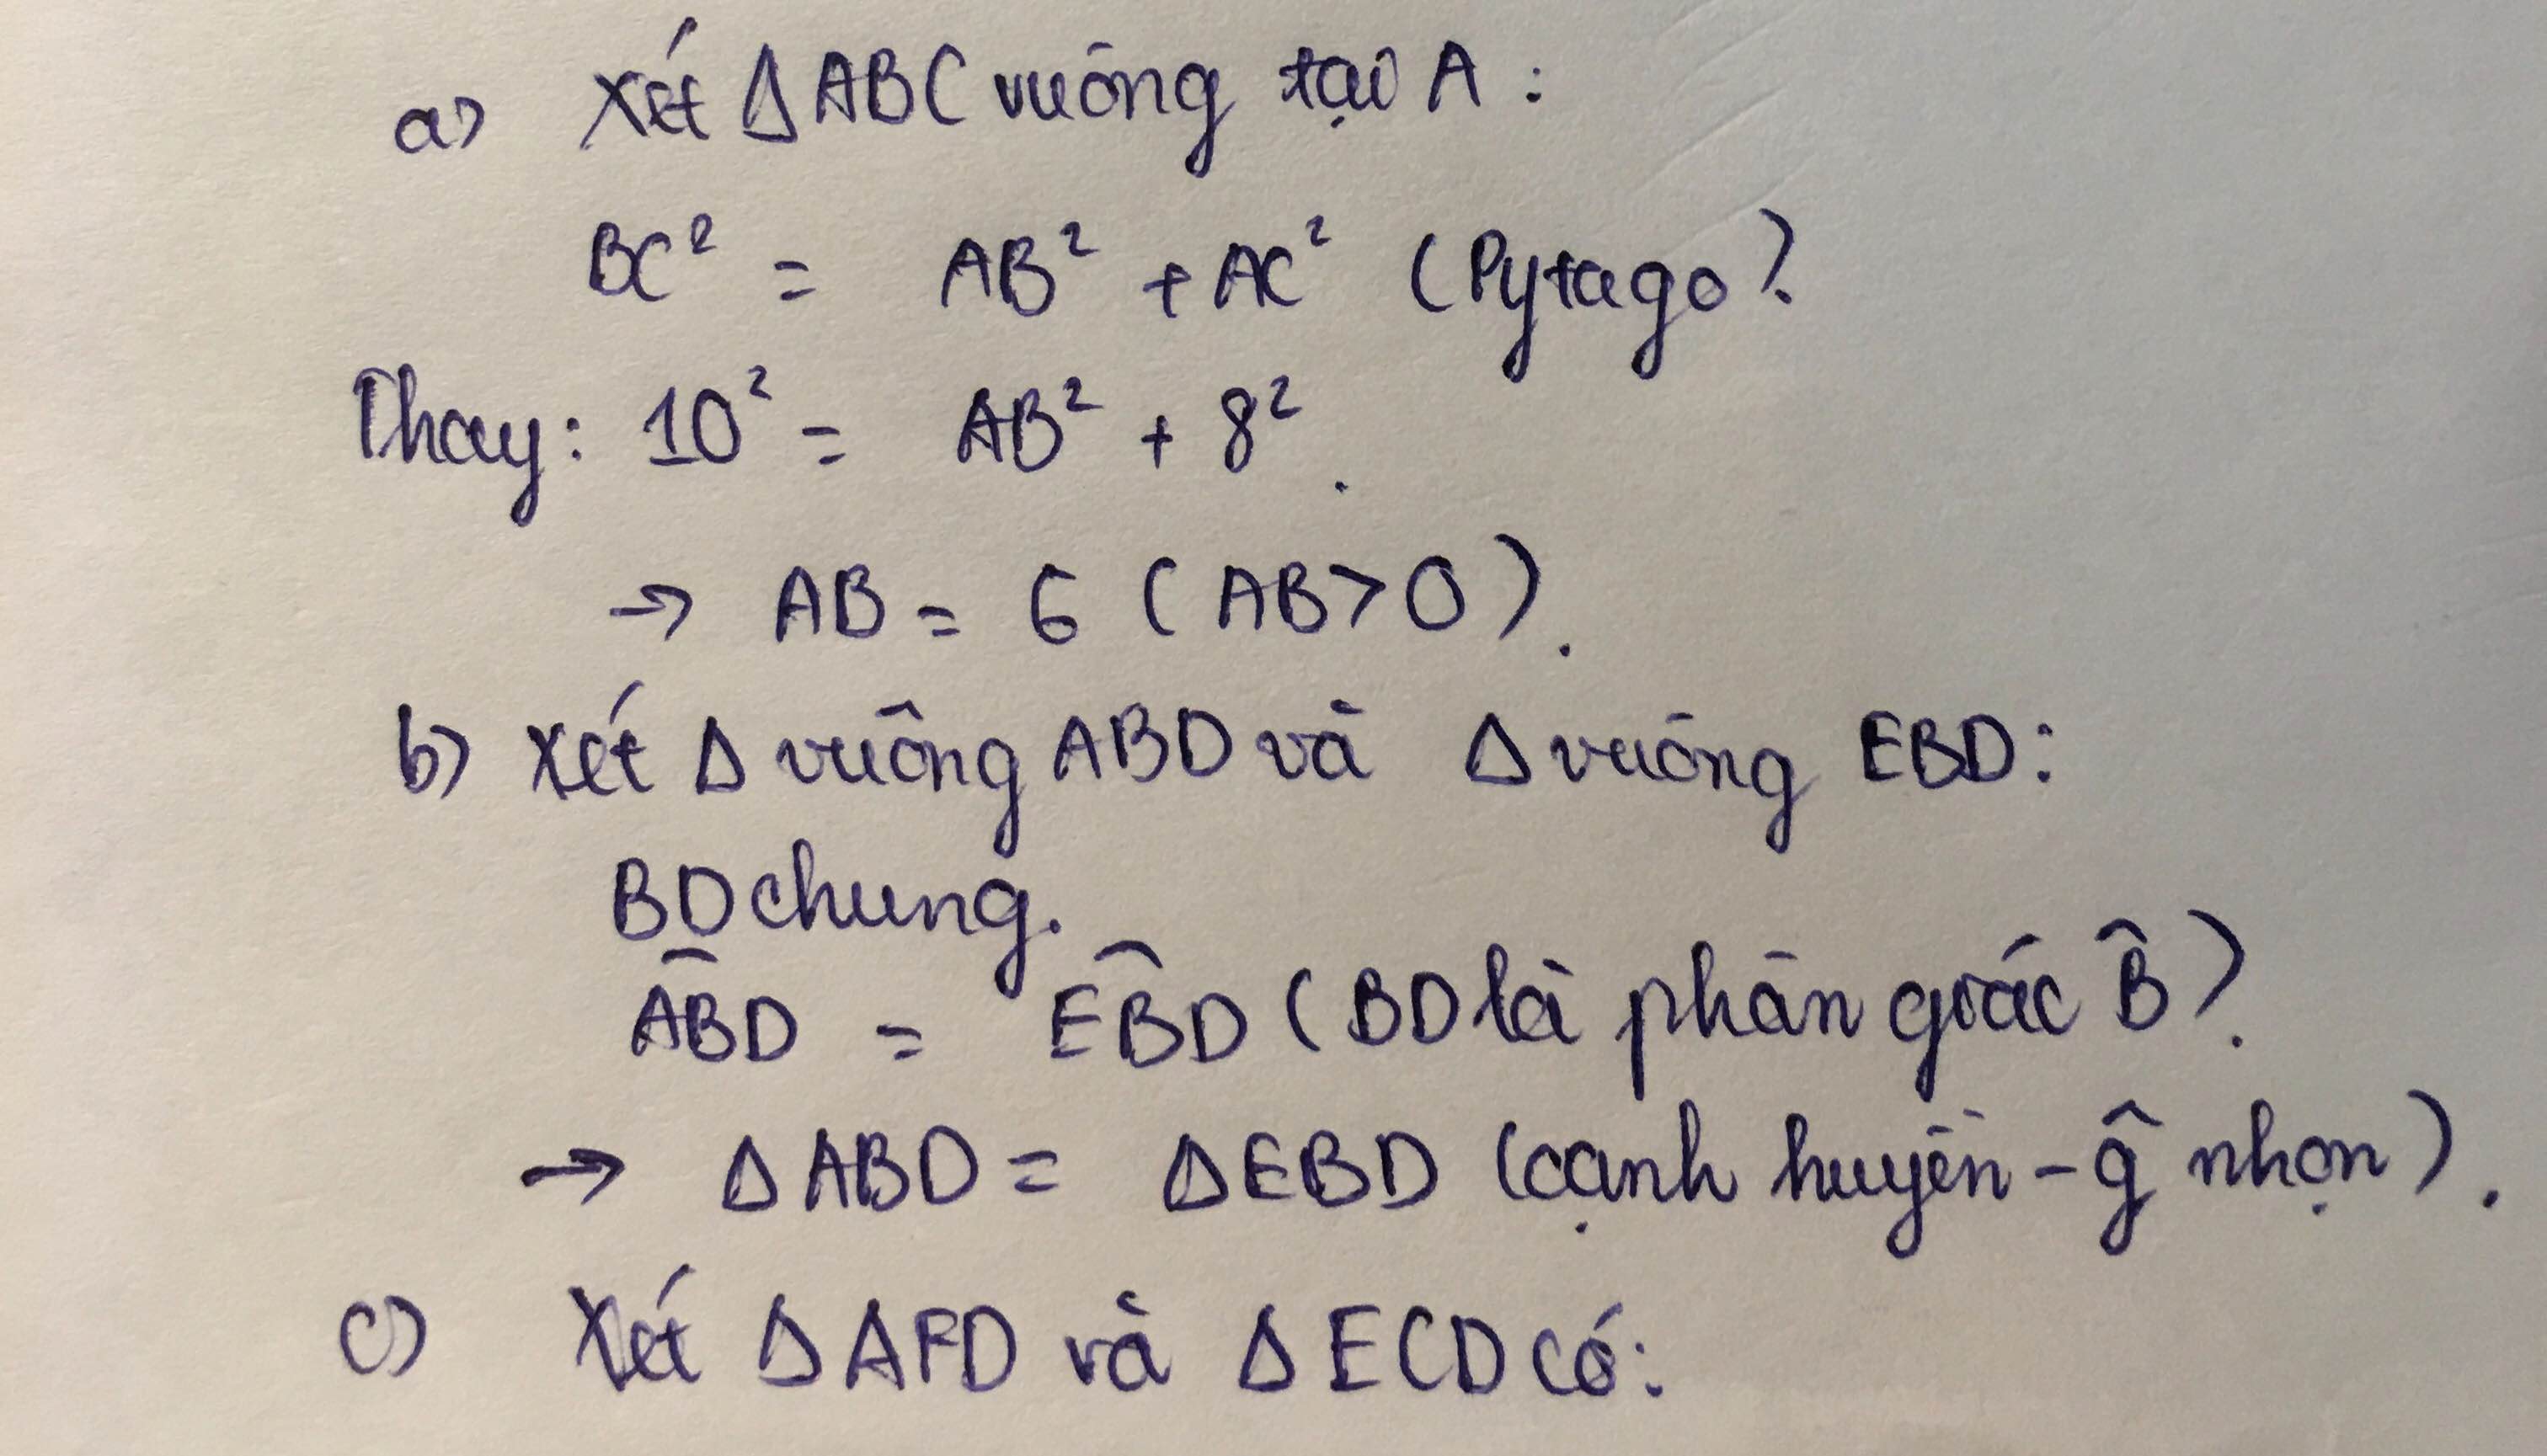 a) Xét ΔABC vuông tại A:
BC² = AB² + AC² (Pytago).
Thay: 10² = AB² + 8².
→ AB = 6 (AB>0).
b) Xét Δ vuông ABD và Δ vuông EBD:
BD chung.
ABD̂ = EBD̂ (BD là phân giác B̂).
→ ΔABD = ΔEBD (cạnh huyền - ĝ nhọn).
c) Xét ΔAFD và ΔECD có: